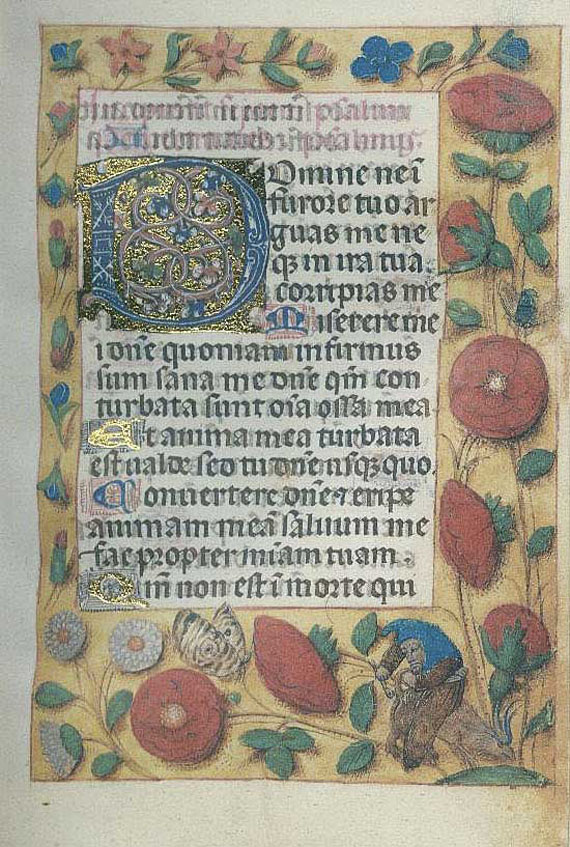 Domine ne i
furore tuo ar
guas me ne
qz in ira tua
corripias me
Miserere me
i dn̄e quoniam infirmus
sum sana me dn̄e qm̄ con
turbata sunt oīa ossa mea
Et anima mea turbata
est ualde sed tu dn̄e usqz quo.
Conuertere dn̄e ⁊ eripe
animam meā saluum me
fac propter mīam tuam.
Qm̄ non est ī morte qui